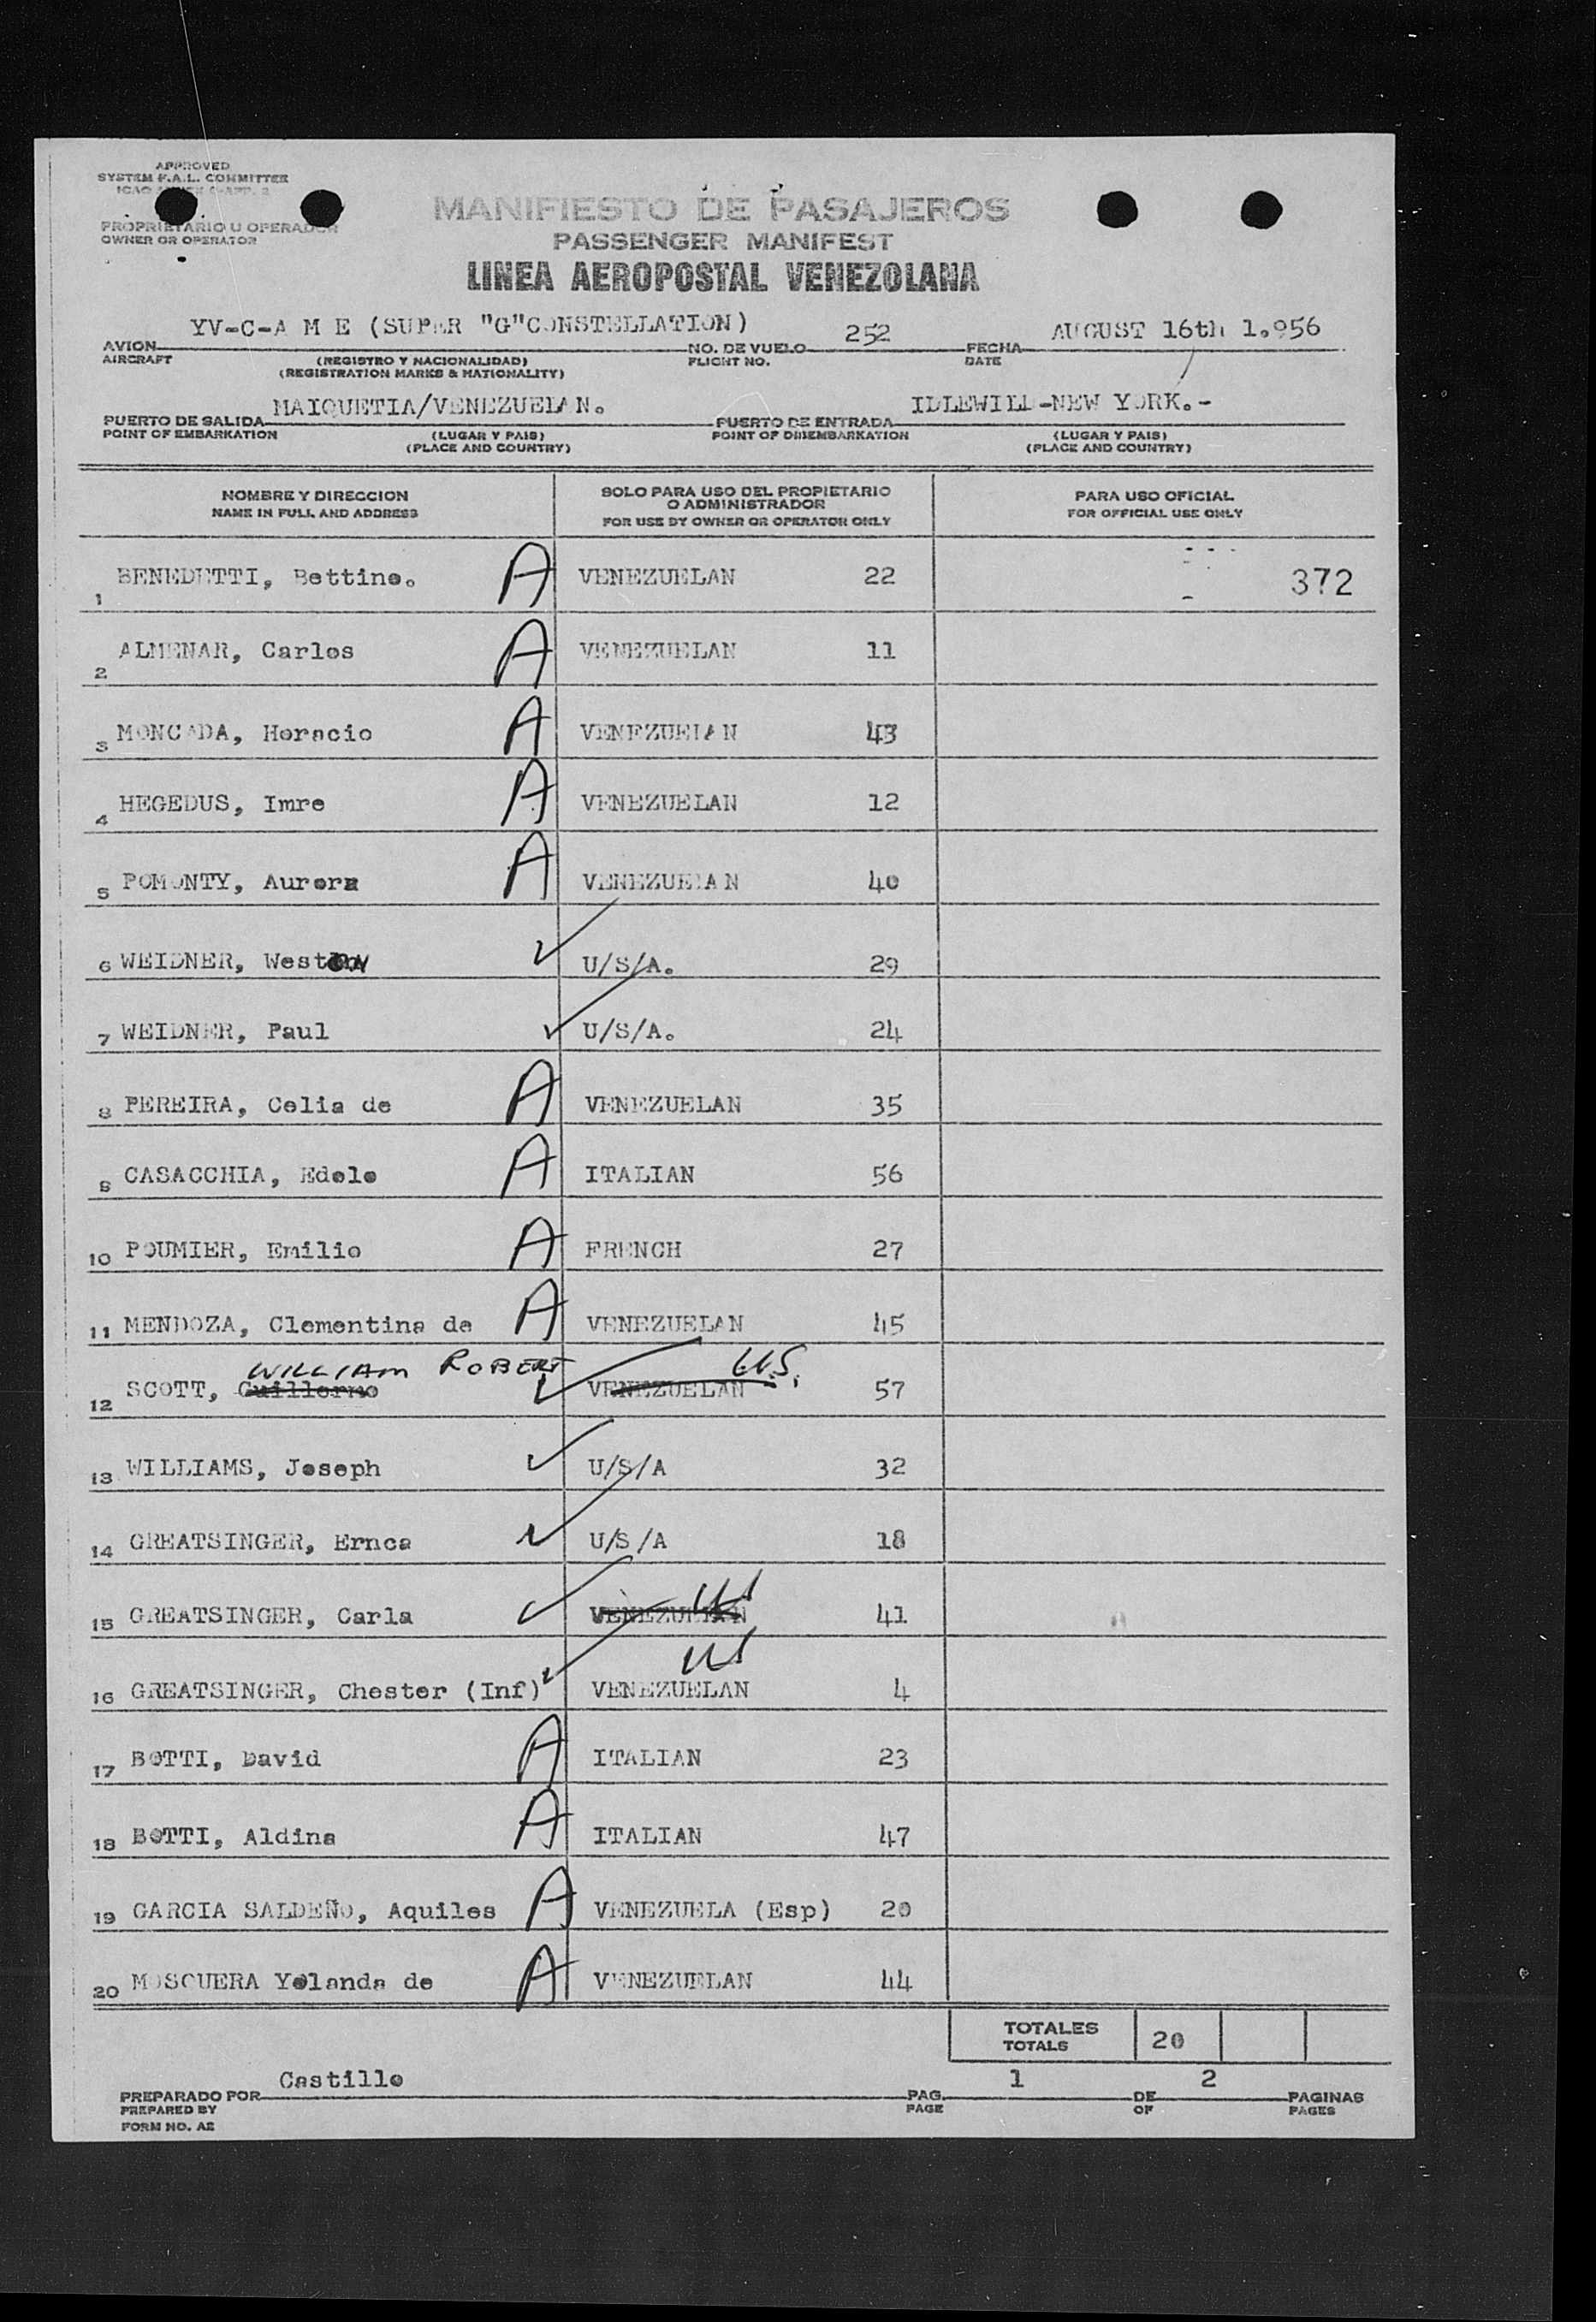 APPROVED
SYSTEM F.A.L. COMMITTEE
PROPRIETARIO U OPERADOR
OWNER OR OPERATOR
MANIFIESTO DE PASAJEROS
PASSENGER MANIFEST
LINEA AEROPOSTAL VENEZOLANA
YV-C-A M E (SUPER "G"CONSTELLATION) 252 AUGUST 16th 1.956
AVION NO. DE VUELO FECHA
AIRCRAFT (REGISTRO Y NACIONALIDAD) FLIGHT NO. DATE
(REGISTRATION MARKS & NATIONALITY)
MAIQUETIA/VENEZUELAN. IDLEWILD-NEW YORK.-
PUERTO DE SALIDA PUERTO DE ENTRADA
POINT OF EMBARKATION (LUGAR Y PAIS) POINT OF DISEMBARKATION (LUGAR Y PAIS)
(PLACE AND COUNTRY) (PLACE AND COUNTRY)
NOMBRE Y DIRECCION SOLO PARA USO DEL PROPIETARIO O ADMINISTRADOR PARA USO OFICIAL
NAME IN FULL AND ADDRESS FOR USE BY OWNER OR OPERATOR ONLY FOR OFFICIAL USE ONLY
1 BENEDETTI, Bettino. A VENEZUELAN 22 372
2 ALMENAR, Carlos A VENEZUELAN 11
3 MONCADA, Horacio A VENEZUELAN 43
4 HEGEDUS, Imre A VENEZUELAN 12
5 POMONTY, Aurora A VENEZUELAN 40
6 WEIDNER, Weston U/S/A. 29
7 WEIDNER, Paul U/S/A. 24
8 PEREIRA, Celia de A VENEZUELAN 35
9 CASACCHIA, Edele A ITALIAN 56
10 POUMIER, Emilio A FRENCH 27
11 MENDOZA, Clementina de A VENEZUELAN 45
WILLIAM ROBERT U.S.
12 SCOTT, Guillermo VENEZUELAN 57
13 WILLIAMS, Joseph U/S/A 32
14 GREATSINGER, Ernca U/S/A 18
US
15 GREATSINGER, Carla VENEZUELAN 41
US
16 GREATSINGER, Chester (Inf) VENEZUELAN 4
17 BOTTI, David A ITALIAN 23
18 BOTTI, Aldina A ITALIAN 47
19 GARCIA SALDEÑO, Aquiles A VENEZUELA (Esp) 20
20 MOSQUERA Yolanda de A VENEZUELAN 44
TOTALES
TOTALS 20
Castillo 1 2
PREPARADO POR PAG. DE PAGINAS
PREPARED BY PAGE OF PAGES
FORM NO. A2